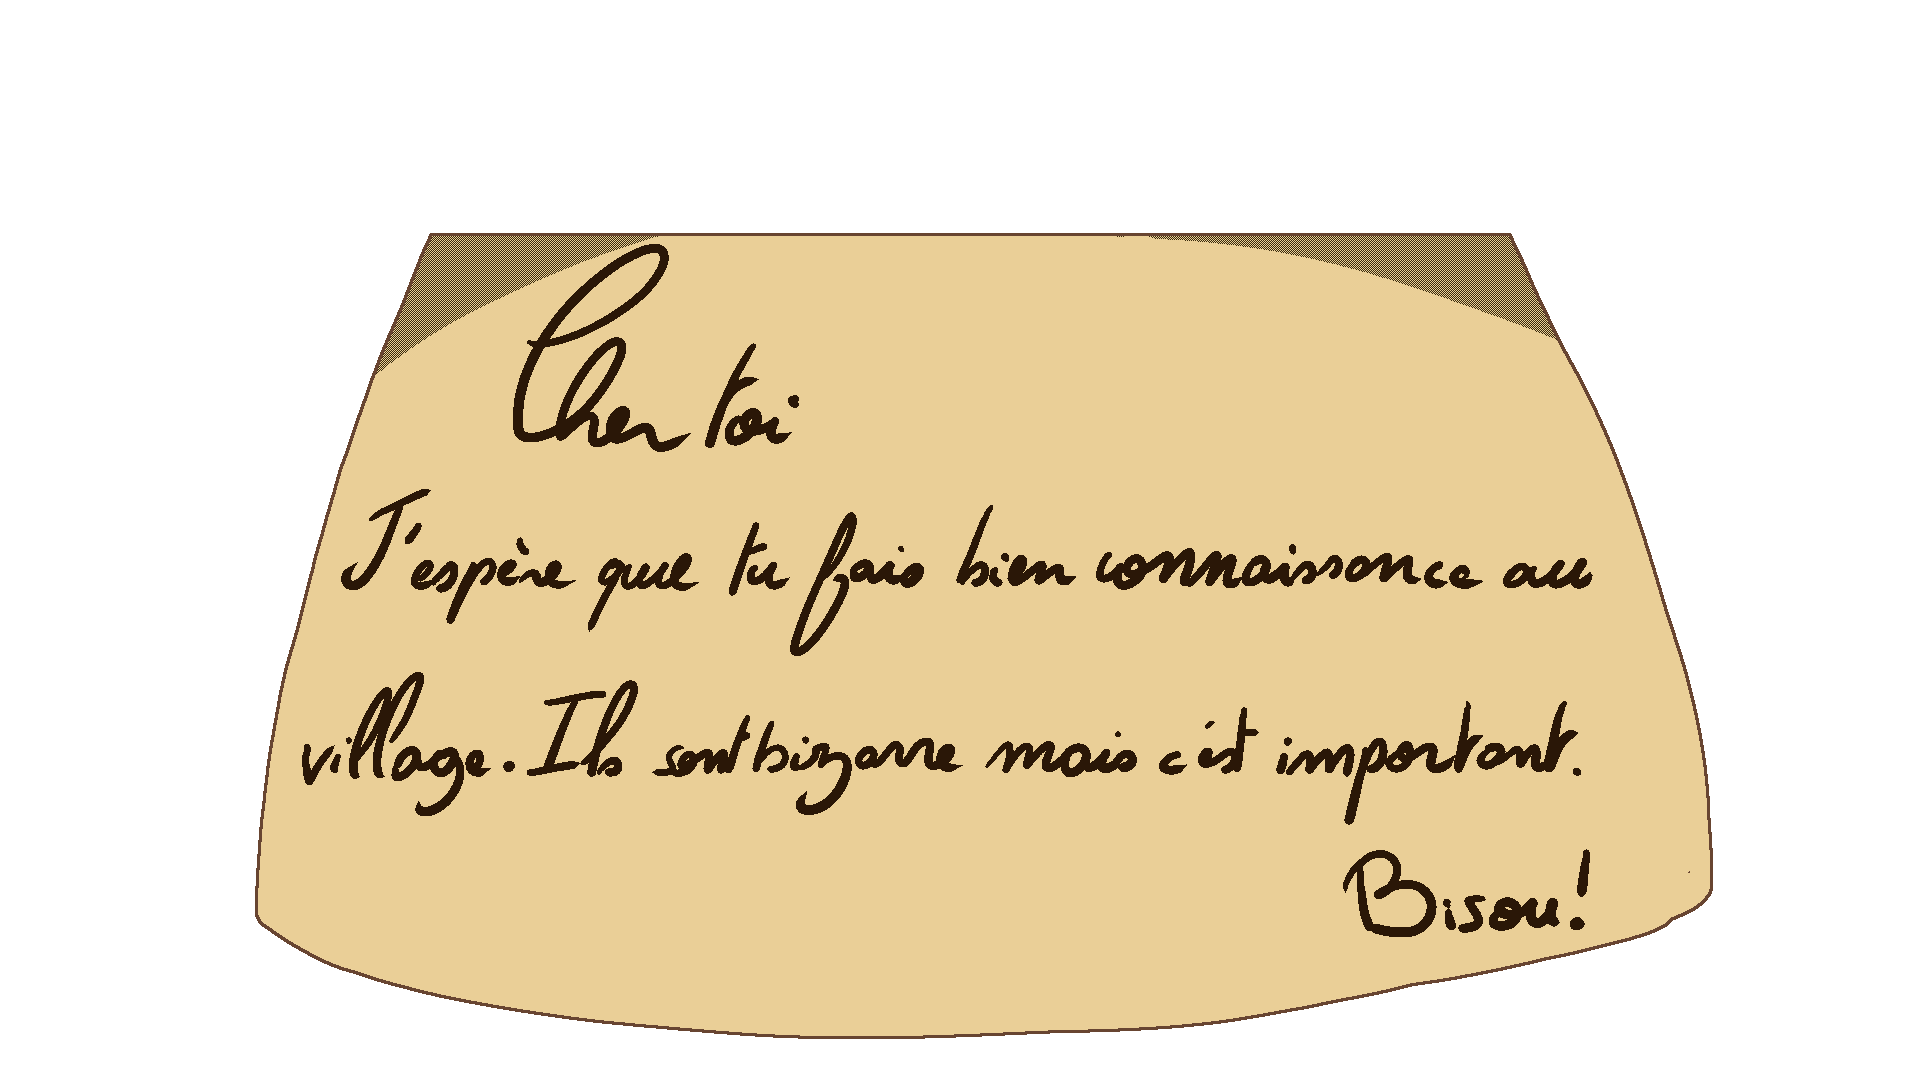 Cher toi
J'espère que tu fais bien connaissance au
village. Ils sont bizarre mais c'est important.
Bisou!